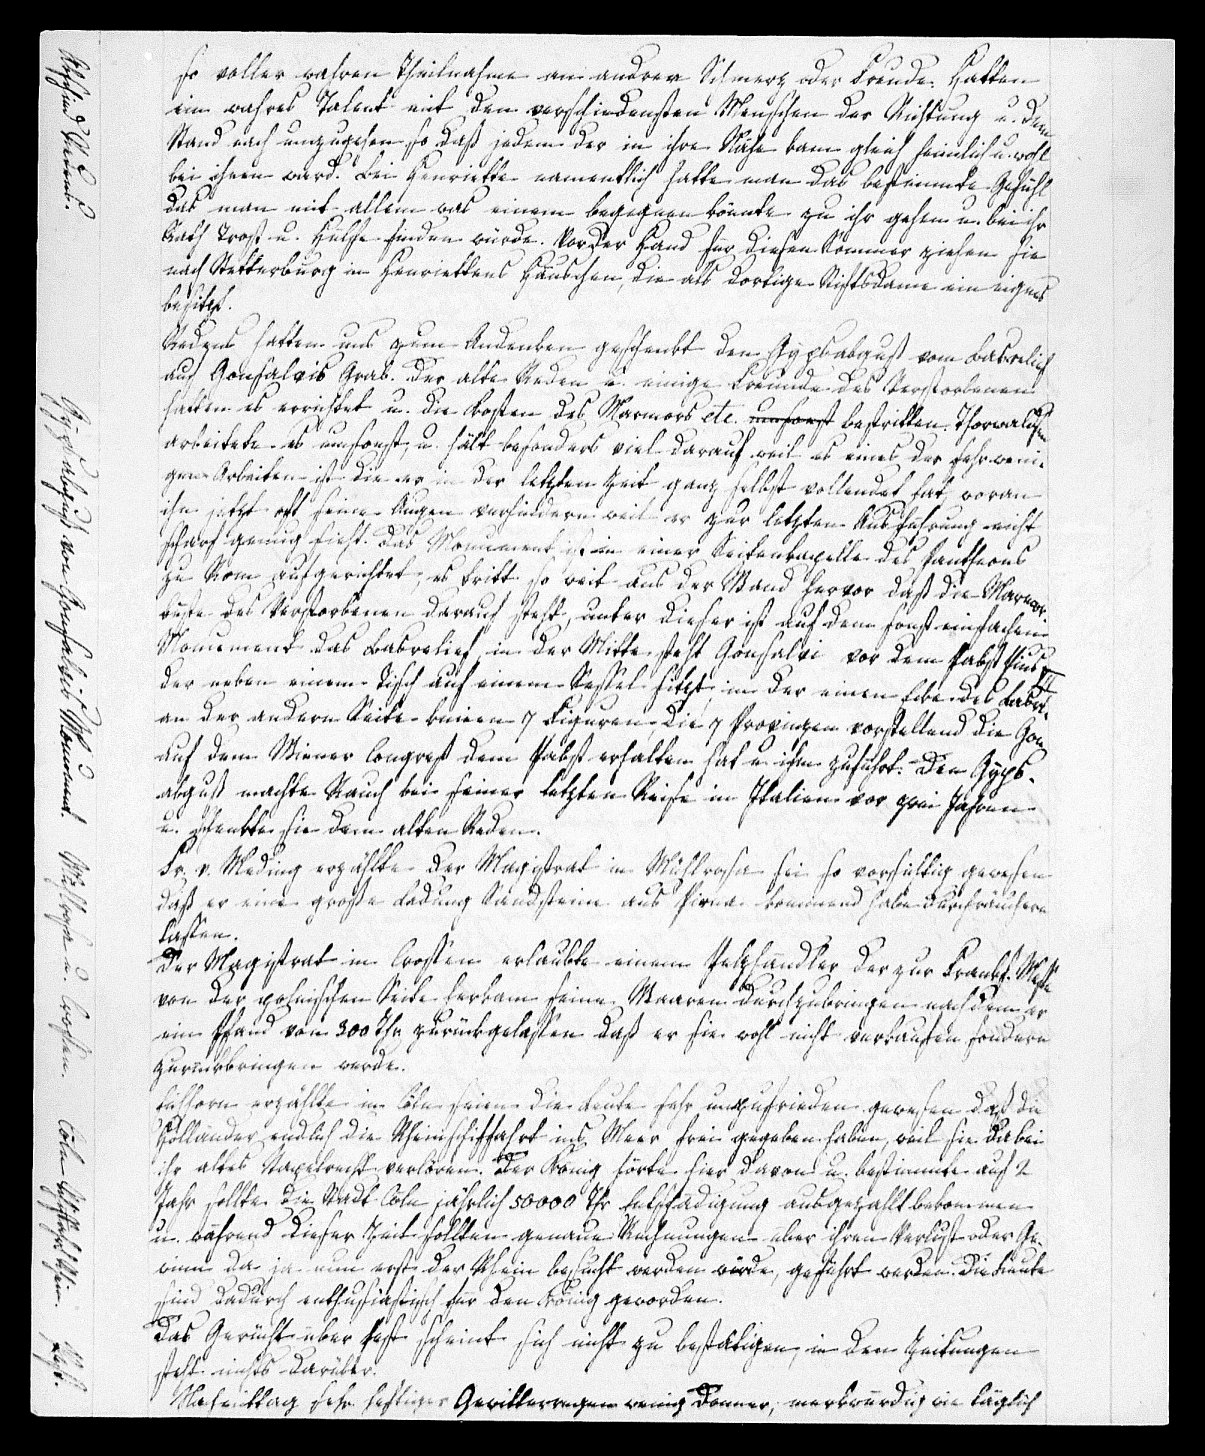 so voller wahren Theilnahme an andrer Schmerz oder Freude. Hatten
ein wahres Talent mit den verschiedensten Menschen der Richtung u. dem
Stand nach umzugehen so daß jedem der in ihre Nähe kam gleich heimlich u. wohl
bei ihnen ward. Bei Henriette namentlich hatte man das bestimmte Gefühl
das man mit allem was einem begegnen könnte zu ihr gehen u. bei ihr
Rath Trost u. Hülfe finden würde. Vor der Hand für diesen Sommer ziehen sie
nach Stetterburg in Henriettens Häuschen, die als dortige Stiftsdame ein eignes
besitzt.
Redens hatten uns zum Andenken geschenkt den Gypsabguß vom Basrelief
auf Gonsalvis Grab. Der alte Reden u. einige Freunde des Verstorbenen
hatten es errichtet u. die Kosten des Marmors etc. umsonst bestritten. Thorwaldsen
arbeitete es umsonst, u. hält besonders viel darauf weil es eines der sehr weni-
gen Arbeiten ist die er in der letzten Zeit ganz selbst vollendet hat, woran
ihn jetzt oft seine Augen verhindern weil er zur letzten Ausführung nicht
scharf genug sieht. Das Monument ist in einer Seitenkapelle des Pantheons
zu Rom aufgerichtet, es tritt so weit aus der Wand hervor daß die Marmor-
büste des Verstorbenen darauf steht, unter dieser ist auf dem sonst einfachen
Monument das Basrelief, in der Mitte steht Gonsalvi vor dem Pabst Pius VII
der neben einem Tisch auf einem Sessel sitzt in der einen Ecke des Basrel.
an der andern Seite knieen 7 Figuren, die 7 Provinzen vorstellend die Gon.
auf dem Wiener Congreß dem Pabst erhalten hat u. ihm zuführt. Den Gyps-
abguß machte Rauch bei seiner letzten Reise in Italien vor zwei Jahren
u. schenkte sie dem alten Reden.
Fr. v. Meding erzählte der Magistrat in Mühlrose sei so vorsichtig gewesen
daß er eine große Ladung Sandsteine aus Pirna kommend habe durchräuchern
lassen.
Der Magistrat in Crossen erlaubte einem Pelzhändler der zur Frankf. Messe
von der polnischen Seite herkam seine Waaren durchzubringen nachdem er
ein Pfand von 300 Thr zurückgelassen daß er sie wohl nicht verkaufen sondern
zurückbringen werde.
Eichhorn erzählte in Cöln seien die Leute sehr unzufrieden gewesen daß die
Holländer endlich die Rheinschiffahrt ins Meer frei gegeben haben, weil sie dabei
ihr altes Stapelrecht verlören. Der König hörte hier davon u. bestimmte auf 2
Jahr sollte die Stadt Cöln jährlich 50000 Thr Entschädigung ausgezahlt bekommen
u. während dieser Zeit sollten genaue Rechnungen über ihren Verlust oder Ge-
winn da ja nun erst der Rhein besucht werden würde, geführt werden. Die Leute
sind dadurch enthusiastisch für den König geworden.
Das Gerücht über Pest scheint sich nicht zu bestätigen, in den Zeitungen
steht nichts darüber.
Nachmittag sehr heftiger Gewitterregen wenig Donner, merkwürdig wie täglich
Gypsabguß von Gonsalvis Monument.
Mühlrose u. Crossen.
Cöln Schiffahrt Rhein.
Pest.